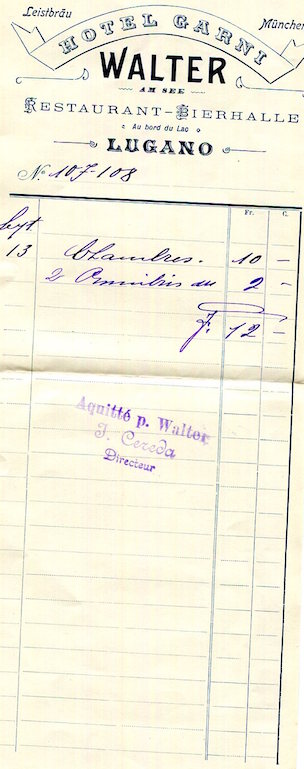 Leistbräu Münchner
HOTEL GARNI
WALTER
AM SEE
RESTAURANT-BIERHALLE
Au bord du Lac
LUGANO
No. 107-108
Fr. C.
Sept.
13 Chambres. 10 -
2 Omnibus 2 -
F. 12 -
Aquitté p. Walter
J. Cereda
Directeur